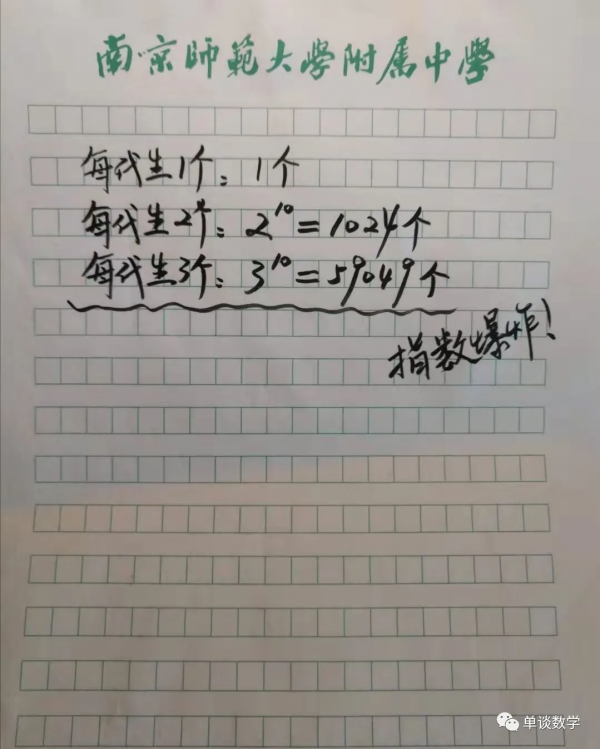 南京師範大學附属中學
每代生1个：1个
每代生2个：2¹⁰=1024个
每代生3个：3¹⁰=59049个
指数爆炸！
单谈数学